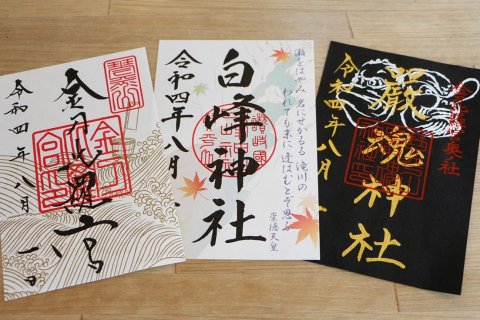 金刀比羅宮
令和四年八月一日
瀬をはやみ 岩にせかるる 滝川の
われても末に 逢はむとぞ思ふ
崇徳天皇
白峰神社
讃岐國
令和四年八月一
奥社
嚴魂神社
令和四年八月一